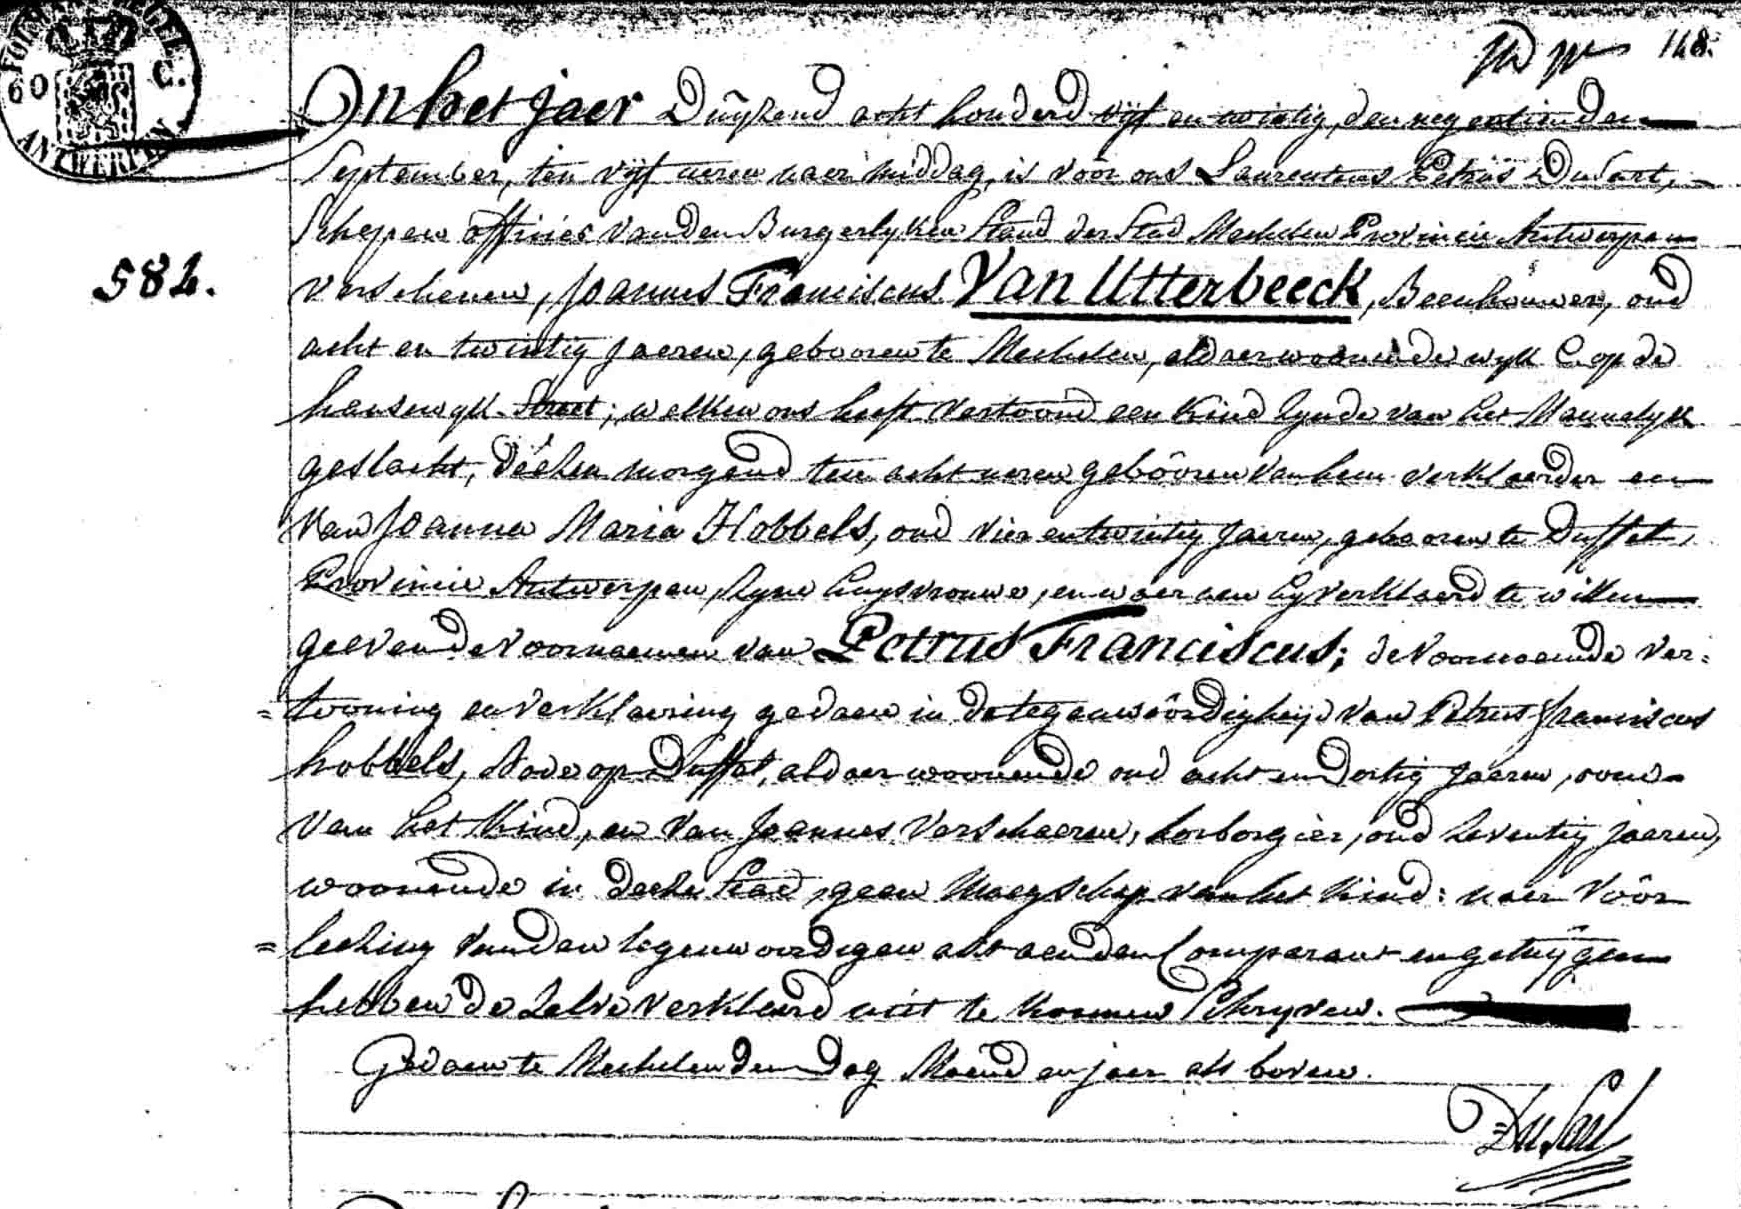 148.
60 C.
ANTWERPEN
In het jaer Duÿzend acht honderd vijf en twintig, den negentienden
September, ten vijf ueren naer middag, is voór ons Laurentius Petrus DuSart,
Schepen officier van den Burgerlyken Stand der Stad Mechelen Provincie Antwerpen
582.
verschenen, Joannes Franciscus Van Utterbeeck, Beenhouwer, oud
acht en twintig Jaeren, gebooren te Mechelen, aldaer woonende wyk C op de
hanswyk-Straet; welken ons heeft vertoond een kind zynde van het Mannelyk
geslacht, deézen morgend ten acht ueren gebôoren van hem verklaerder en
van Joanna Maria Hobbels, oud vier en twintig Jaeren, gebooren te Duffel,
Provincie Antwerpen, zyne huysvrouwe, en waer aen hy verklaerd te willen
geeven de voornaemen van Petrus Franciscus; de voornoemde ver=
=tooning en verklaering gedaen in de tegenwoórdigheyd van Petrus franciscus
hobbels, Bode op Duffel, aldaer woonende oud acht en dertig Jaeren, oom
van het Kind, en van Joannes Verschaeren, herbergier, oud zeventig jaeren,
woonende in deeze Stad, geen Maegschap van het Kind: naer Voór
=leezing van den tegenwoordigen akt aen den Comparant en getuÿgen
hebben de zelve verklaerd niet te konnen Schryven.
Gedaen te Mechelen den Dag Maend en jaer als boven.
DuSart